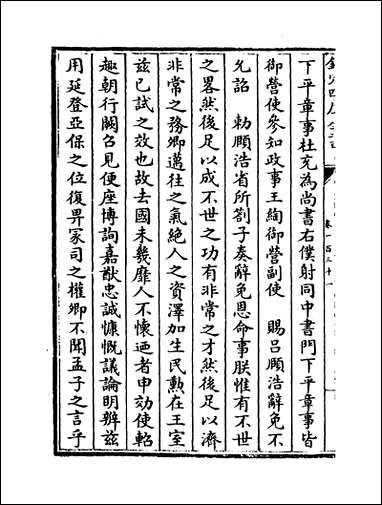 欽定四庫全書
卷一百三十一
下平章事杜充為尚書右僕射同中書門下平章事皆
御營使參知政事王綯御營副使　賜呂頤浩辭免不
允詔　勅頤浩省所劄子奏辭免恩命事朕惟有不世
之畧然後足以成不世之功有非常之才然後足以濟
非常之務卿邁往之氣絕人之資澤加生民勲在王室
兹已試之效也故去國未幾靡人不懷迺者申効使軺
趣朝行闕召見便座博詢嘉猷忠誠慷慨議論明辨兹
用延登亞保之位復畀冡司之權卿不聞孟子之言乎